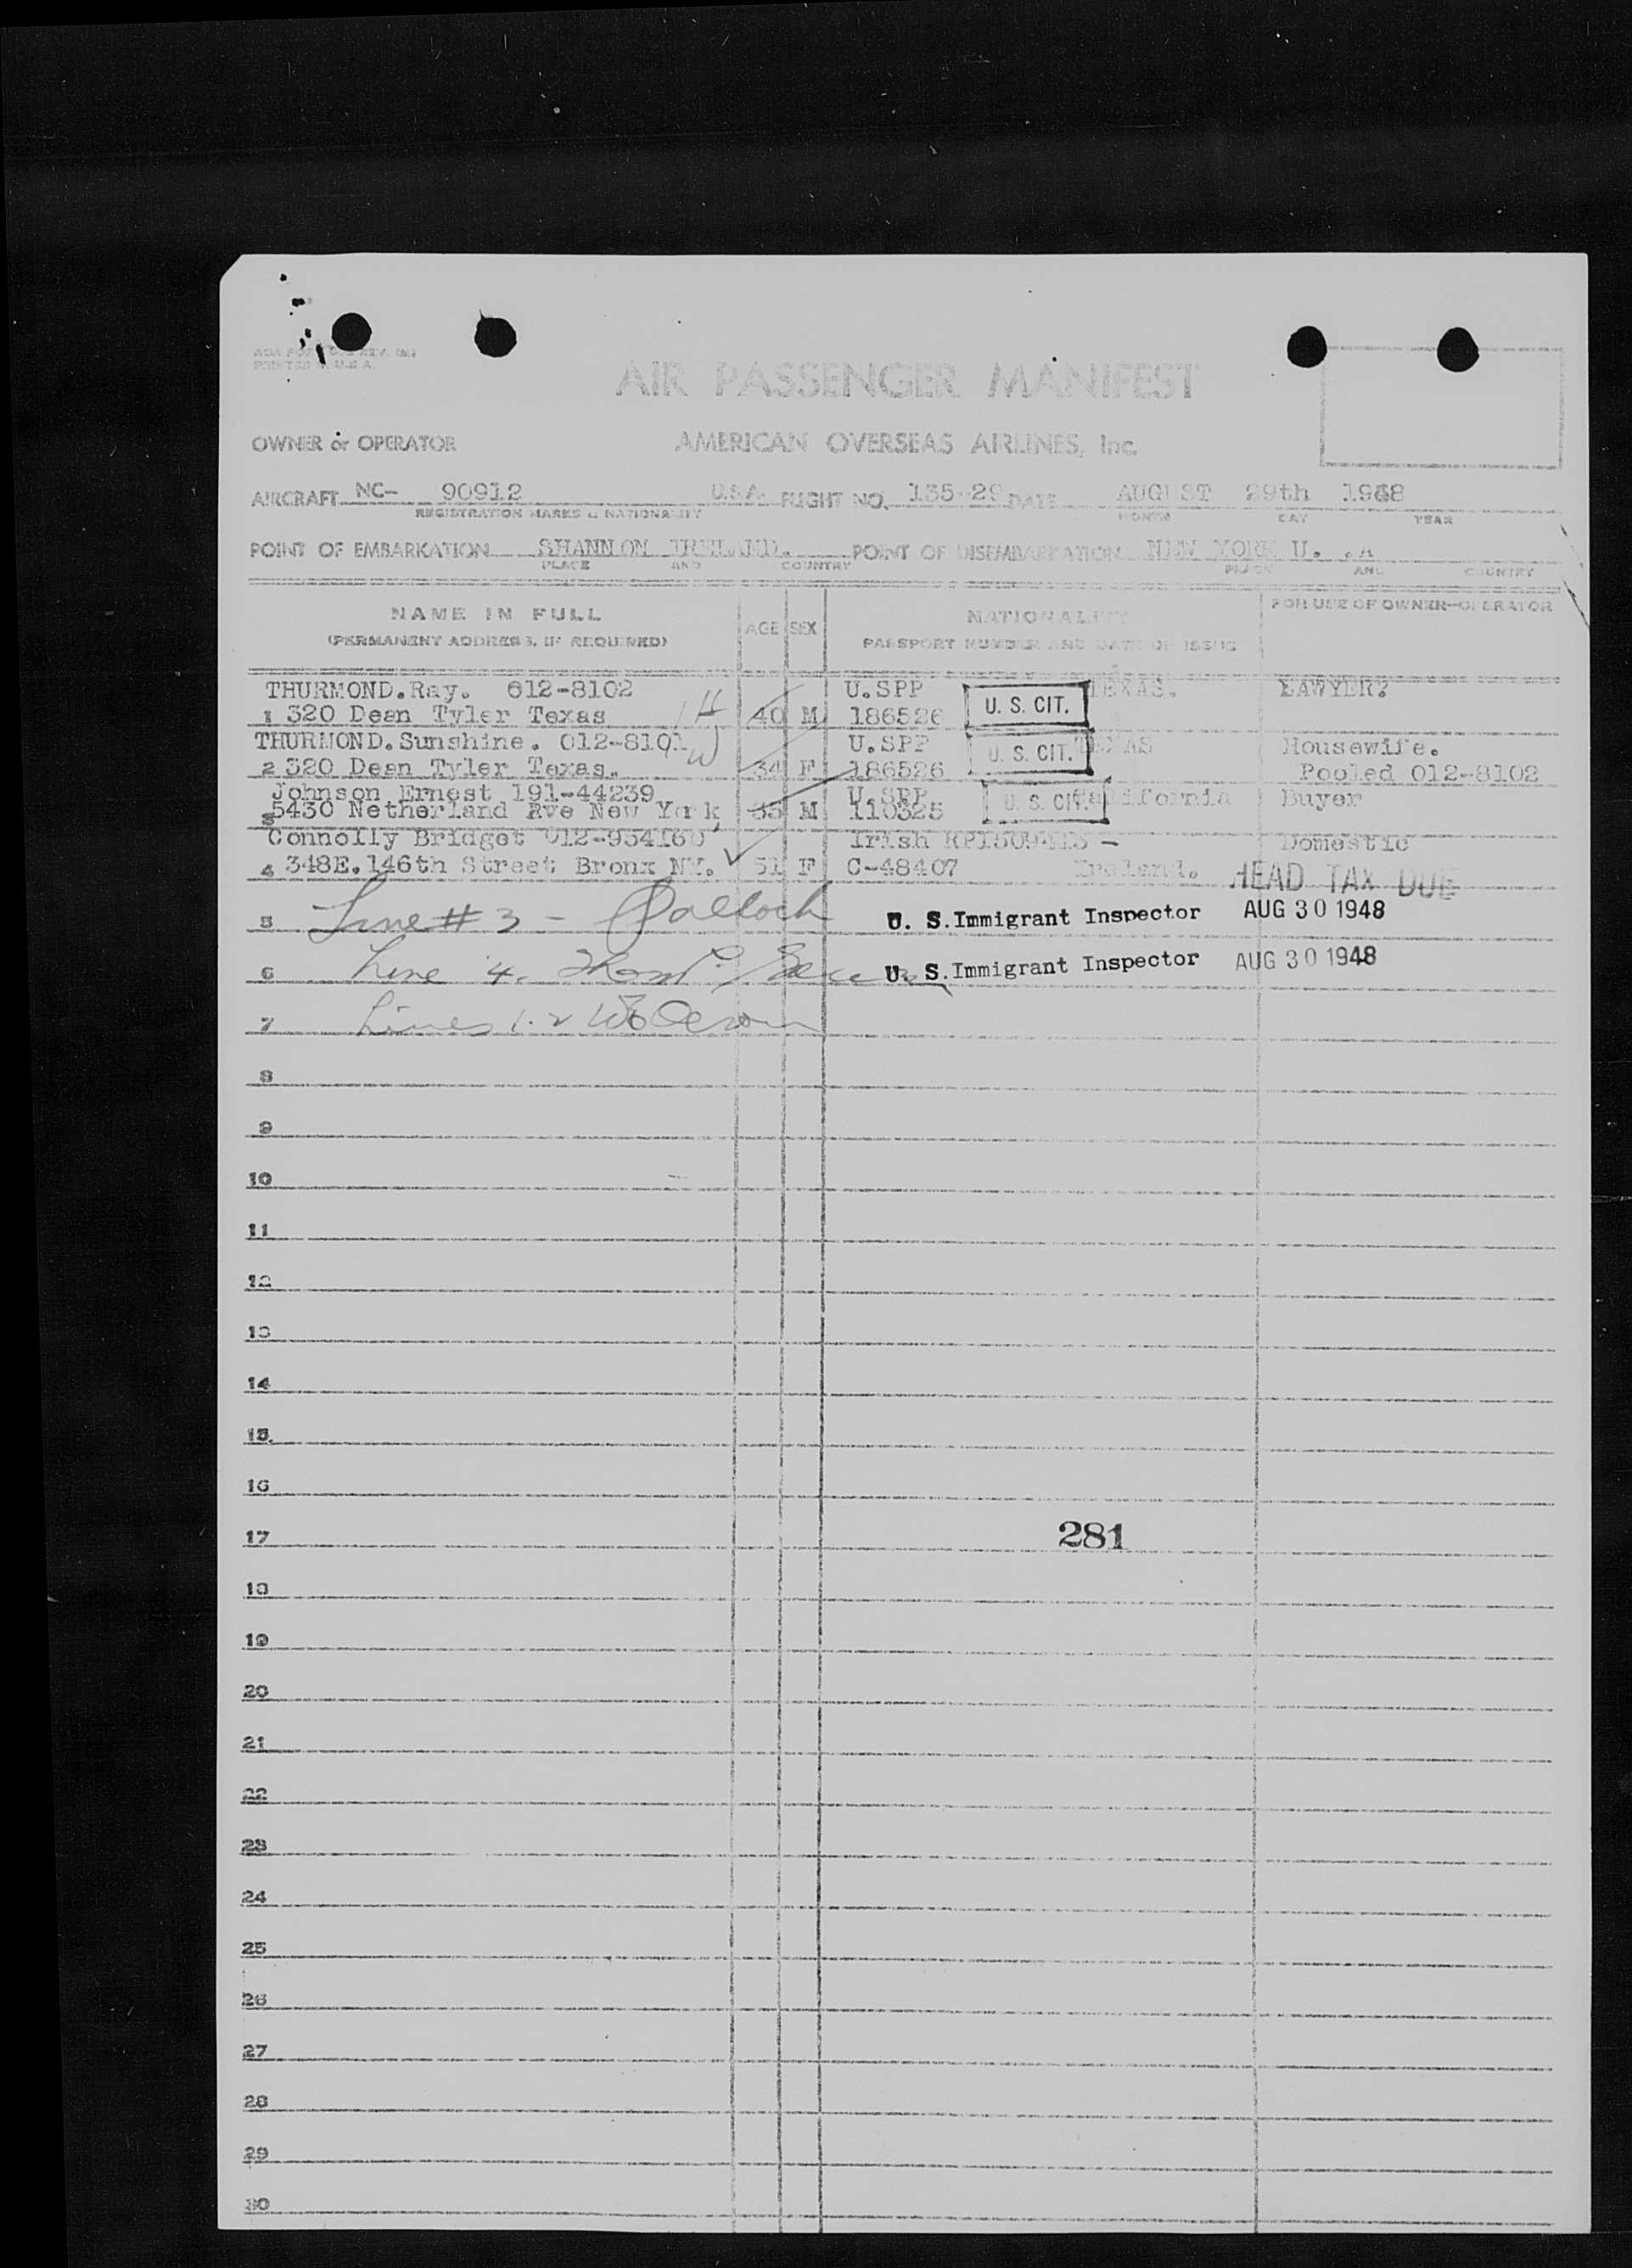 PRINTED U.S.A.
AIR PASSENGER MANIFEST
OWNER or OPERATOR AMERICAN OVERSEAS AIRLINES, Inc.
AIRCRAFT NC- 90912 U.S.A. FLIGHT NO. 135-29 DATE AUGUST 29th 1948
REGISTRATION MARKS & NATIONALITY MONTH DAY YEAR
POINT OF EMBARKATION SHANNON IRELAND. POINT OF DISEMBARKATION NEW YORK U. .A
PLACE AND COUNTRY PLACE AND COUNTRY
NAME IN FULL AGE SEX NATIONALITY FOR USE OF OWNER-OPERATOR
(PERMANENT ADDRESS, IF REQUIRED) PASSPORT NUMBER AND DATE OF ISSUE
THURMOND.Ray. 012-8102 U.SPP TEXAS. LAWYER.
1 320 Dean Tyler Texas H 40 M 186526 U. S. CIT.
THURMOND.Sunshine. 012-8101 W U.SPP TEXAS Housewife.
2 320 Dean Tyler Texas. 34 F 186526 U. S. CIT. Pooled 012-8102
Johnson Ernest 191-44239 U.SPP California Buyer
3 5430 Netherland Ave New York 35 M 110325 U. S. CIT.
Connolly Bridget 012-954160 Irish Domestic
4 348E.146th Street Bronx NY. 51 F C-48407 Ireland. HEAD TAX DUE
5 Line #3 - U. S. Immigrant Inspector AUG 30 1948
6 Line 4. U. S. Immigrant Inspector AUG 30 1948
7 Lines 1.2
8
9
10
11
12
13
14
15
16
17 281
18
19
20
21
22
23
24
25
26
27
28
29
30